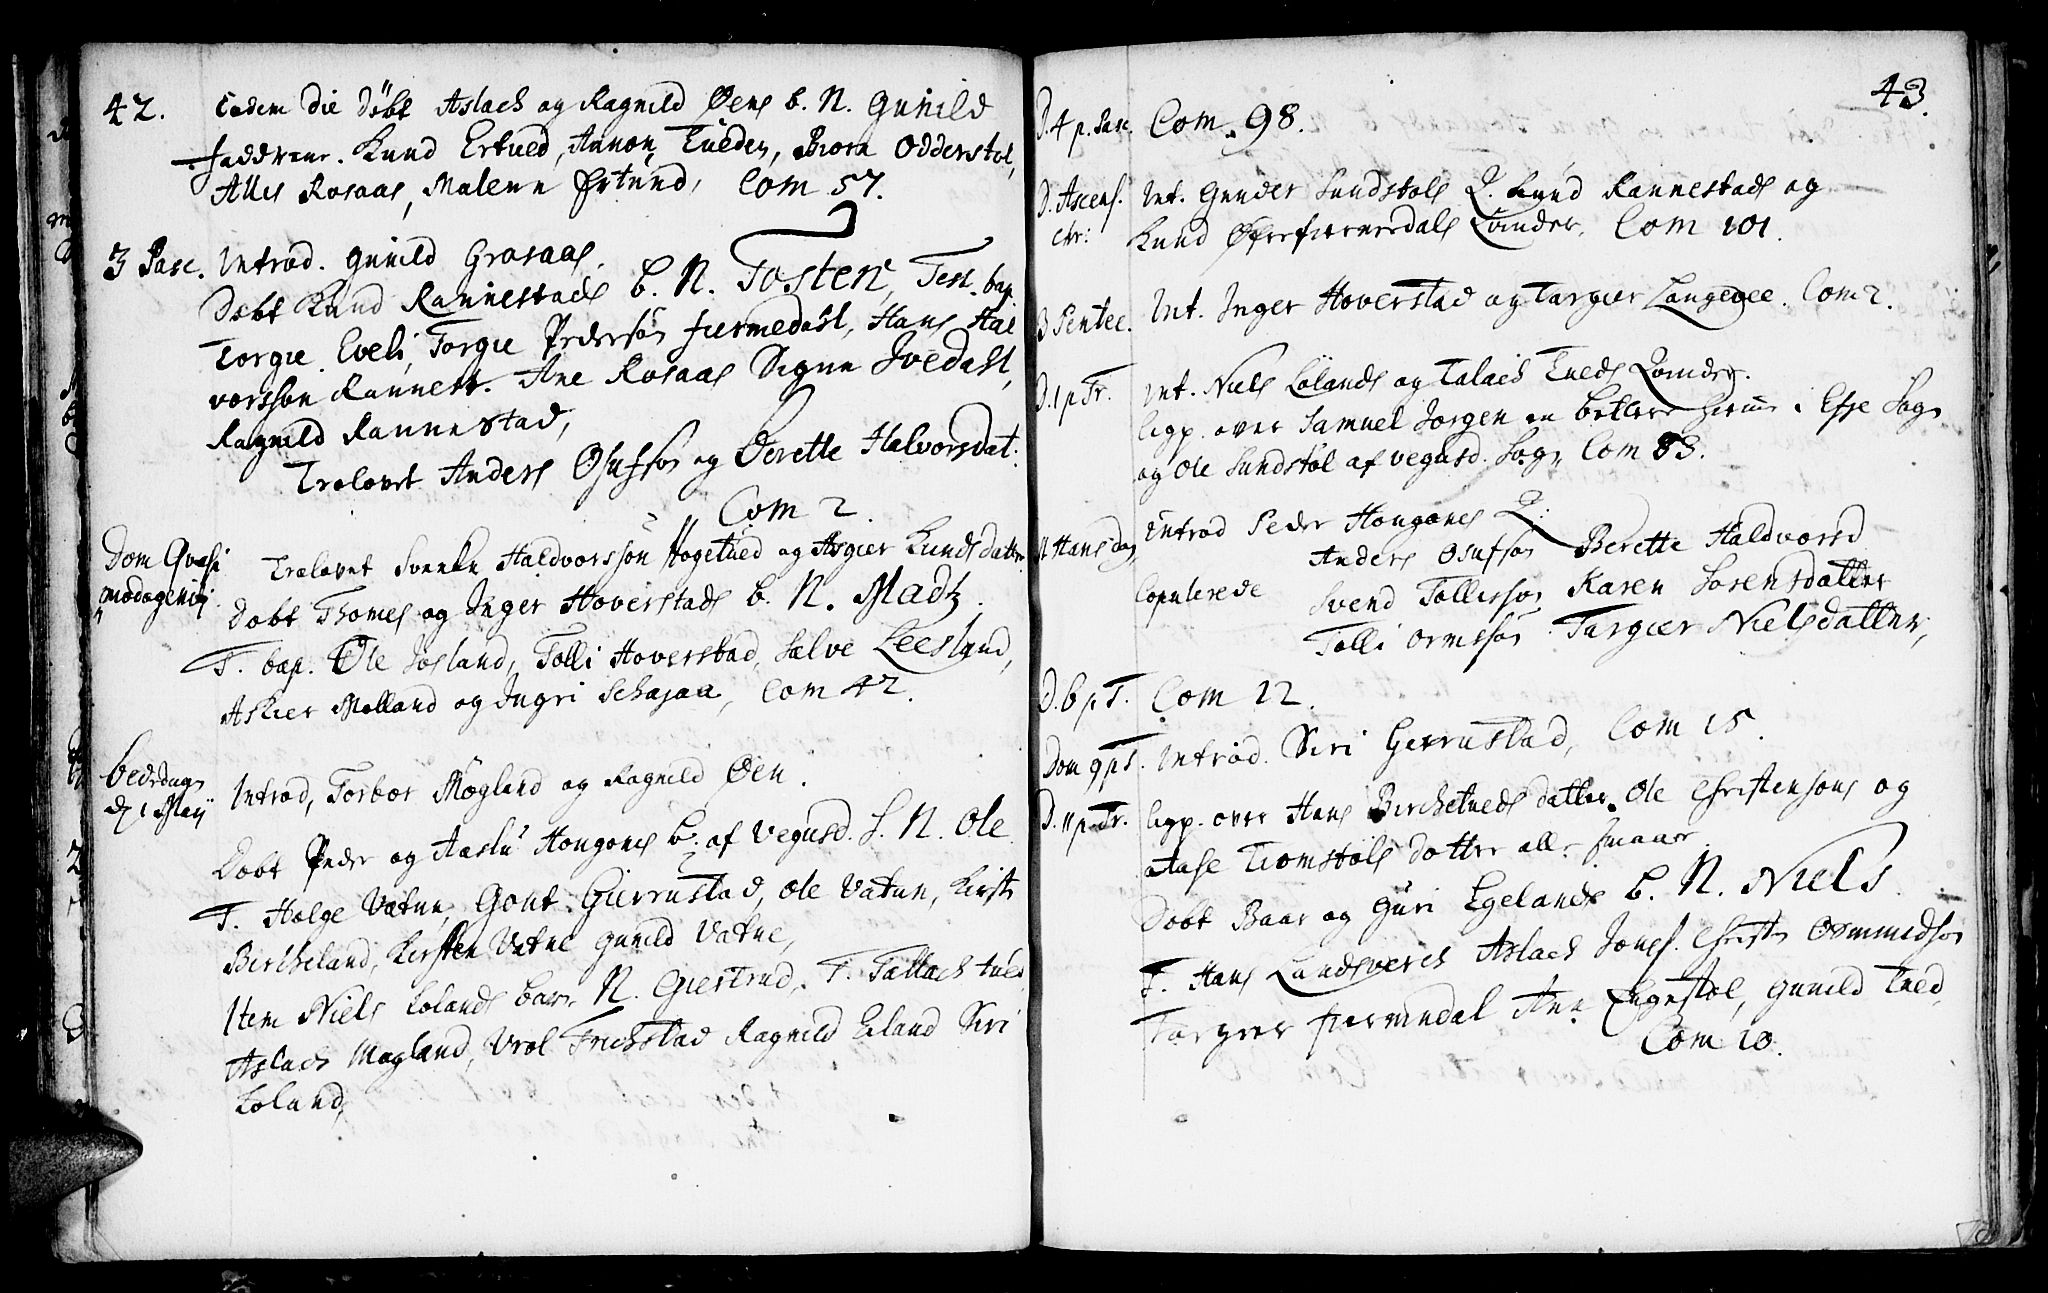 42.
Eadem die Döbt Aslach og Ragnild Öens b. N. Gunild
faddrene. Knud Ertued, Annon Tueden, Biorn Odderstöl,
Alles Rosaas, Malene Ertued, Com 57.
3 Pasc. Introd. Gunild Grosaas.
Döbt Knud Rannestads b. N. Tosten, Test. bap.
Torgie Eveli, Torgie Pedersön fiermedahl, Hans Hal
vorssön Rannest. Ane Rosaas Signe Ivedahl,
Ragnild Rannestad,
Trolovet Anders Osufsøn og Berette Halvorsdat:
Com 2.
Dom Qvasi
modogenitj
Trolovet Svenke Haldvorssön Hogetued og Asgier Kundsdatter
Dobt Thomes og Inger Hoverstads b. N. Madz.
T. bap. Ole Josland, Tolli Hoverstad, Salve Leesland,
Askier Molland og Ingri Schajaa, Com 42.
bededag
d. 1 Maij
Introd, Torbor Mögland og Ragnild Öen.
Dobt Peder og Aaslu Hongones b. af Vegusd. S. N. Ole
T. Helge Vatne, Gont Gierrustad, Ole Vatne, Kirst
Bircheland, Kirsten Vatne Gunild Vatne,
Item Niels Lolands barn N. Giertrud, T. Tallach tued
Aslach Mogland, Vrol Trichstad Ragnild Eiland Siri
Loland,
43.
D. 4 p. Pasc. Com. 98.
D. Ascens.
chr:
Int. Gunder Sundstöls Q. Knud Rannestads og
Knud Öfrefiermedals Qvinder. Com 101.
3 Pentec. Int. Inger Hoverstad og Targier Langeoee. Com 2.
D. 1 p Tr. Int. Niels Lölands og Talach Tueds Qvinder.
ligp. over Samuel Jorgen en betlere herune i Efje Sogn
og Ole Sundstöl af vegusd. Sogn Com 83.
St Hans dag, introd Peder Hongones Q.
Copulerede
Anders Osufsøn Berette Haldvorsd
Svend Tollissøn Karen Sorensdatter
Tolli Ormssøn Targier Nielsdatter,
D. 6 p T. Com 12.
Dom 9 p T. Introd. Siri Gierrustad, Com 15.
D. 11 p. Tr. ligp. over Hans Birchetueds datter. Ole Christensöns og
Aase Tiomstöls dotter alle smaae
Döbt Baar og Guri Egelands b. N. Niels.
F. Hans Landsverch Aslach Jons. Christen Osmundsøn
Targier fiermedal Ane Engestöl, Gunild Tued,
Com 10.